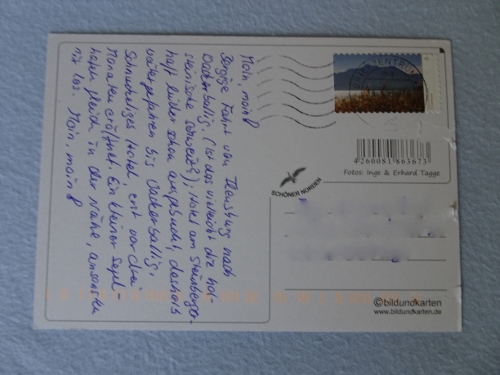 Moin, moin!
Fahrt von Flensburg nach
Dockerballig. (Ist das vielleicht die hol-
steinische Schweiz?), Hotel am
haft leider schon ausgebucht, deshalb
weitergefahren bis Dockerballig.
Schnuckeliges Hotel, erst vor drei
Monaten eröffnet. Ein kleiner Segel-
hafen gleich in der Nähe, ansonsten
nix los. Moin, moin!
4 260081 863673
Fotos: Inge & Erhard Tagge
SCHÖNER NORDEN
©bildundkarten
www.bildundkarten.de